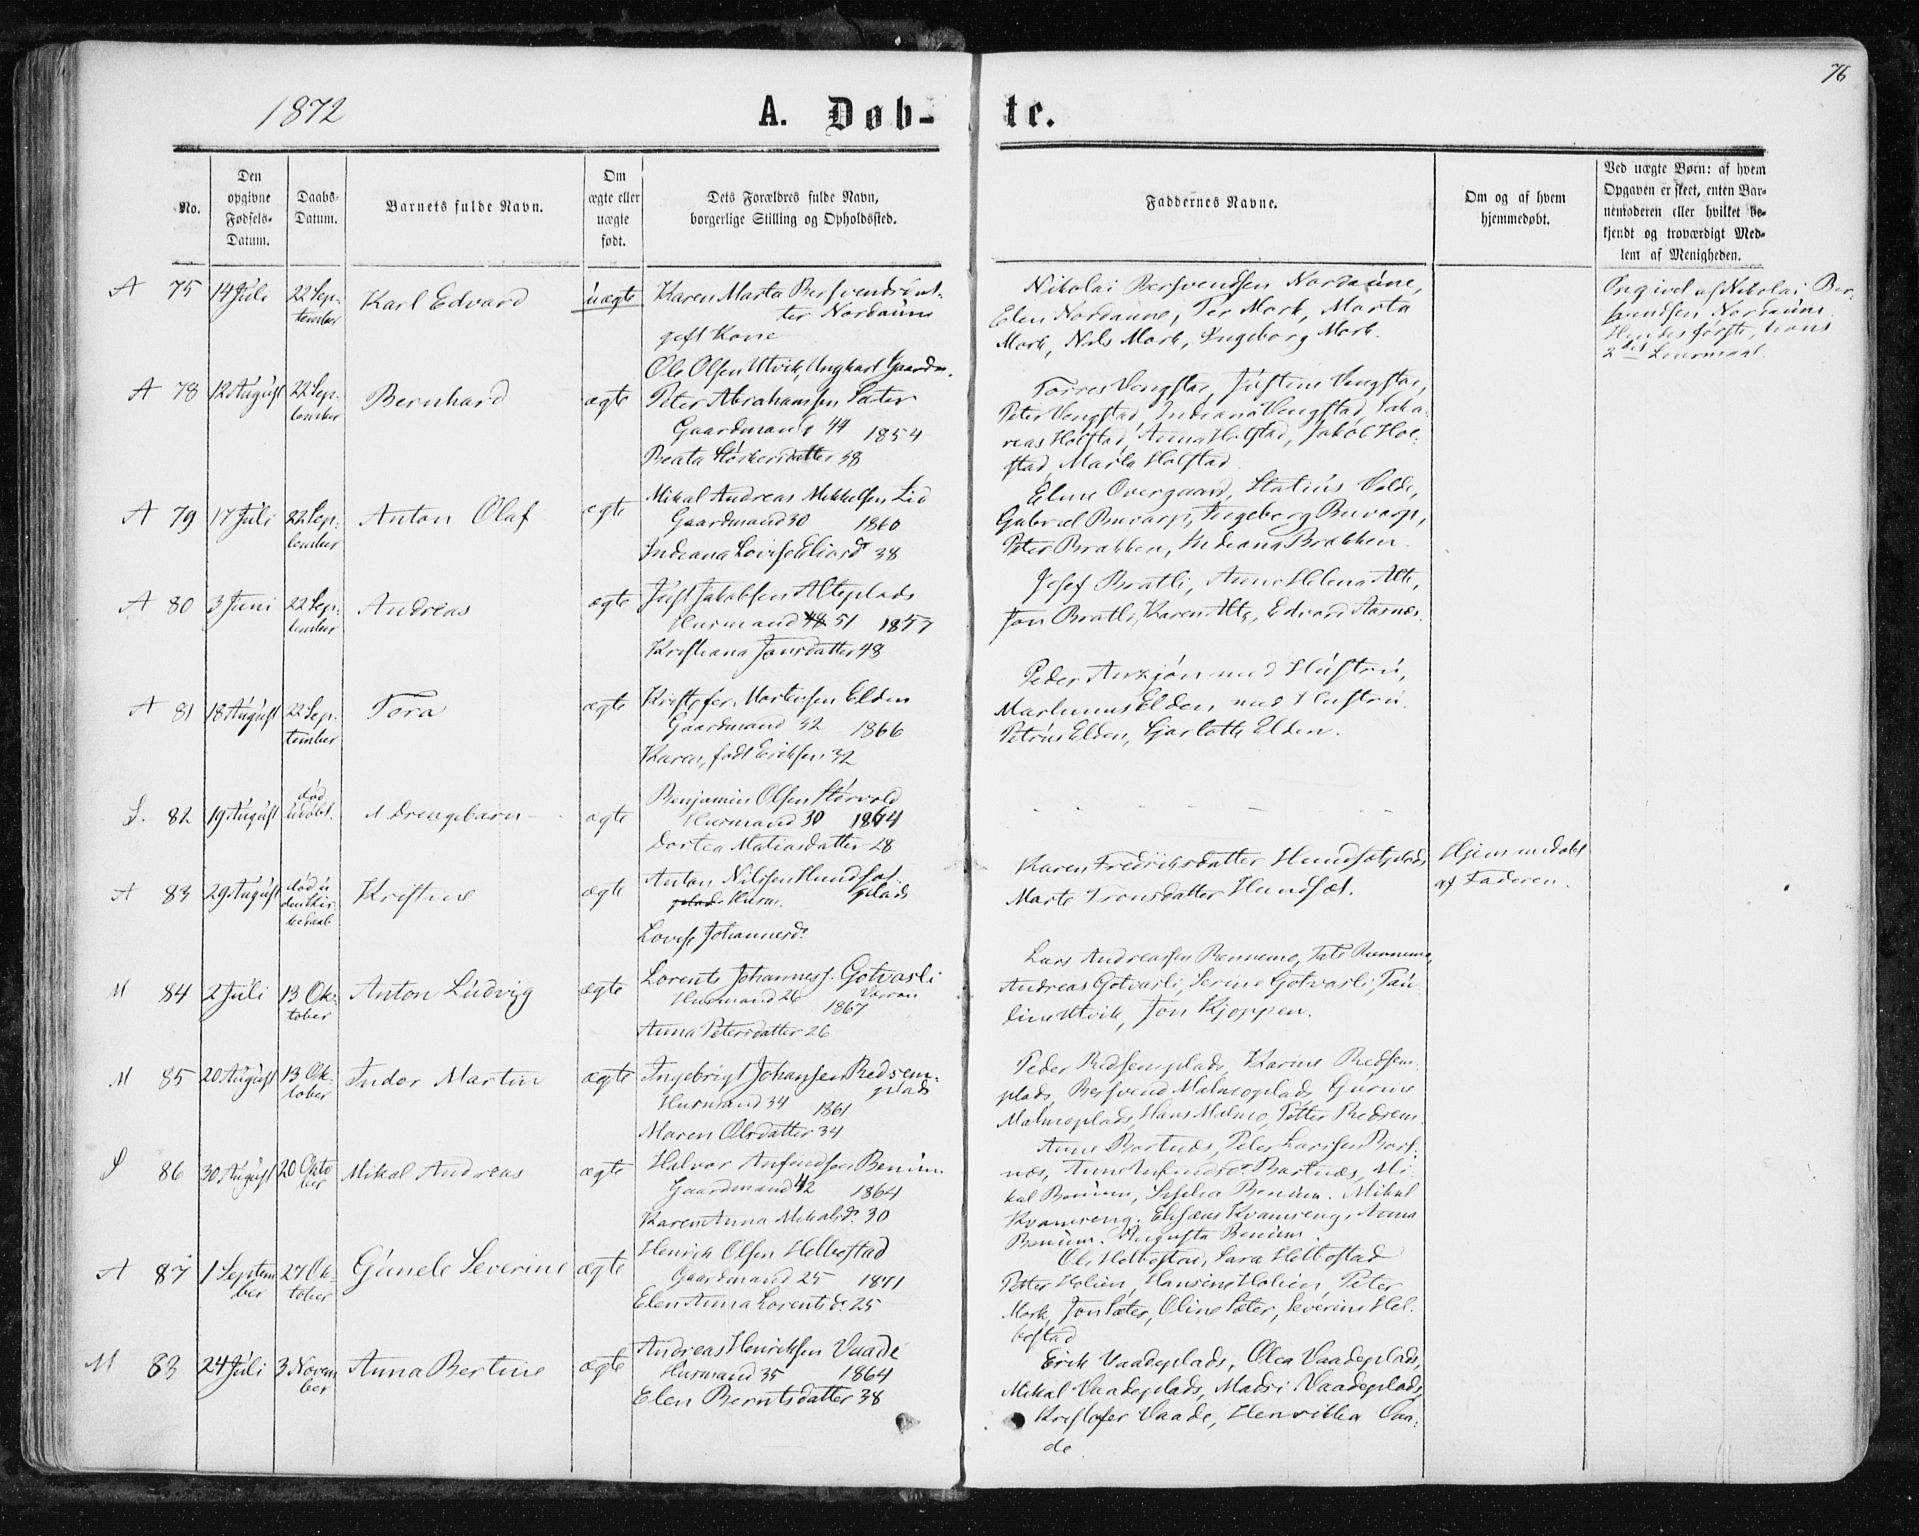 76
1872
A. Døb-
te.
No.
Den
opgivne
Fødsels-
Datum.
Daabs-
Datum.
Barnets fulde Navn.
Om
ægte eller
uægte
født.
Dets Forældres fulde Navn,
borgerlige Stilling og Opholdssted.
Faddernes Navne.
Om og af hvem
hjemmedøbt.
Ved uægte Børn: af hvem
Opgaven er skeet, enten Bar-
nemoderen eller hvilket be-
kjendt og troværdigt Med-
lem af Menigheden.
A 75 14 Juli 22 Sep-
tember
Karl Edvard
uægte
Karen Marta Bersvendsdat-
ter Nordaune
gift Kone
Ole Olsen Utvik, Ungkarl Gaardm.
Nikolai Bersvendsen Nordaune,
Elen Nordaune, Per Mork, Marta
Mork, Nils Mork, Ingeborg Mork.
Opgivet af Nikolai Ber-
svendsen Nordaune.
Hendes første, hans
2det Leiermaal.
A 78 12 August 22 Sep-
tember
Bernhard
ægte
Peter Abrahamsen Sæter
Gaardmand 44 1854
Beata Størkersdatter 38
Torres Vengstad, Justine Vengstad,
Peter Vengstad, Indiana Vengstad, Saka-
rias Holstad, Anna Holstad, Jakob Hol-
stad, Marta Holstad.
A 79 17 Juli 22 Sep-
tember
Anton Olaf
ægte
Mikal Andreas Mikkelsen Lid
Gaardmand 30 1860
Indiana Lovise Eliasd. 38
Eline Overgaard, Statius Volde,
Gabriel Buvarp, Ingeborg Buvarp,
Peter Brakken, Indiana Brakken.
A 80 3 Juni 22 Sep-
tember
Andreas
ægte
Just Jakobsen Alteplads
Husmand 48 51 1857
Kristiana Jonsdatter 48
Josef Bratli, Anne Helena Alte,
Jon Bratli, Karen Alte, Edvard Aarnes.
A 81 18 August 22 Sep-
tember
Tora
ægte
Kristofer Martensen Elden
Gaardmand 32 1866
Karen, født Eriksen 32
Peder Auskjøn med Hustru,
Martinus Elden med Hustru.
Petrus Elden, Sjarlotte Elden.
S. 82 19 August død
udøbt.
Drengebarn
ægte
Benjamin Olsen Størvold
Husmand 30 1864
Dortea Matiasdatter 28
A 83 29 August død u-
den Kir-
kedaab
Kristine
ægte
Anton Nilsen Hundsæt-
plads
plads Husm.
Lovise Johannesd.
Karen Fredriksdatter Hundsætplads
Marte Tronsdatter Hundsæt.
Hjemmedøbt
af Faderen.
M 84 2 Juli 13 Ok-
tober
Anton Ludvig
ægte
Lorents Johanness. Gotvasli
Husmand 26 Værran
1867
Anna Petersdatter 26
Lars Andreasen Rennemo, Tale Rennemo,
Andreas Gotvasli, Serine Gotvasli, Pau-
line Utvik, Jon Kjoppen.
M 85 20 August 13 Ok-
tober
Indor Martin
ægte
Ingebrigt Johansen Rødsem-
plads
Husmand 34 1861
Maren Olsdatter 34
Peder Rødsemplads, Karine Rødsem-
plads, Bersvend Malmoplads, Gurine
Malmoplads, Hans Malmo, Petter Rødsem
S 86 30 August 20 Okto
ber
Mikal Andreas
ægte
Halvor Anfindsen Benum
Gaardmand 42 1864
Karen Anna Mikalsd. 30
Anne Bartnæs, Peter Larssen Bart-
næs, Anne Anfindsd. Bartnæs, Mi-
kal Benum, Sofia Benum. Mikal
Kvamseng, Eliseus Kvamseng, Anna
Benum. Augusta Benum.
A 87 1 Septem
ber
27 Ok-
tober
Gunele Severine
ægte
Henrik Olsen Helbostad
Gaardmand 25 1871
Elen Anna Lorentsd. 25
Ole Helbostad, Sara Helbostad
Petter Holien, Hansine Holien, Peter
Mork, Jon Sæter, Oline Sæter, Severin Hel-
bostad
M 88 24 Juli 3 Novem
ber
Anna Bertine
ægte
Andreas Henriksen Vaade
Husmand 35 1864
Elen Berntsdatter 38
Erik Vaadeplads, Olea Vaadeplads,
Mikal Vaadeplads, Madsi Vaadeplads,
Kristofer Vaade, Henrikka Vaa-
de